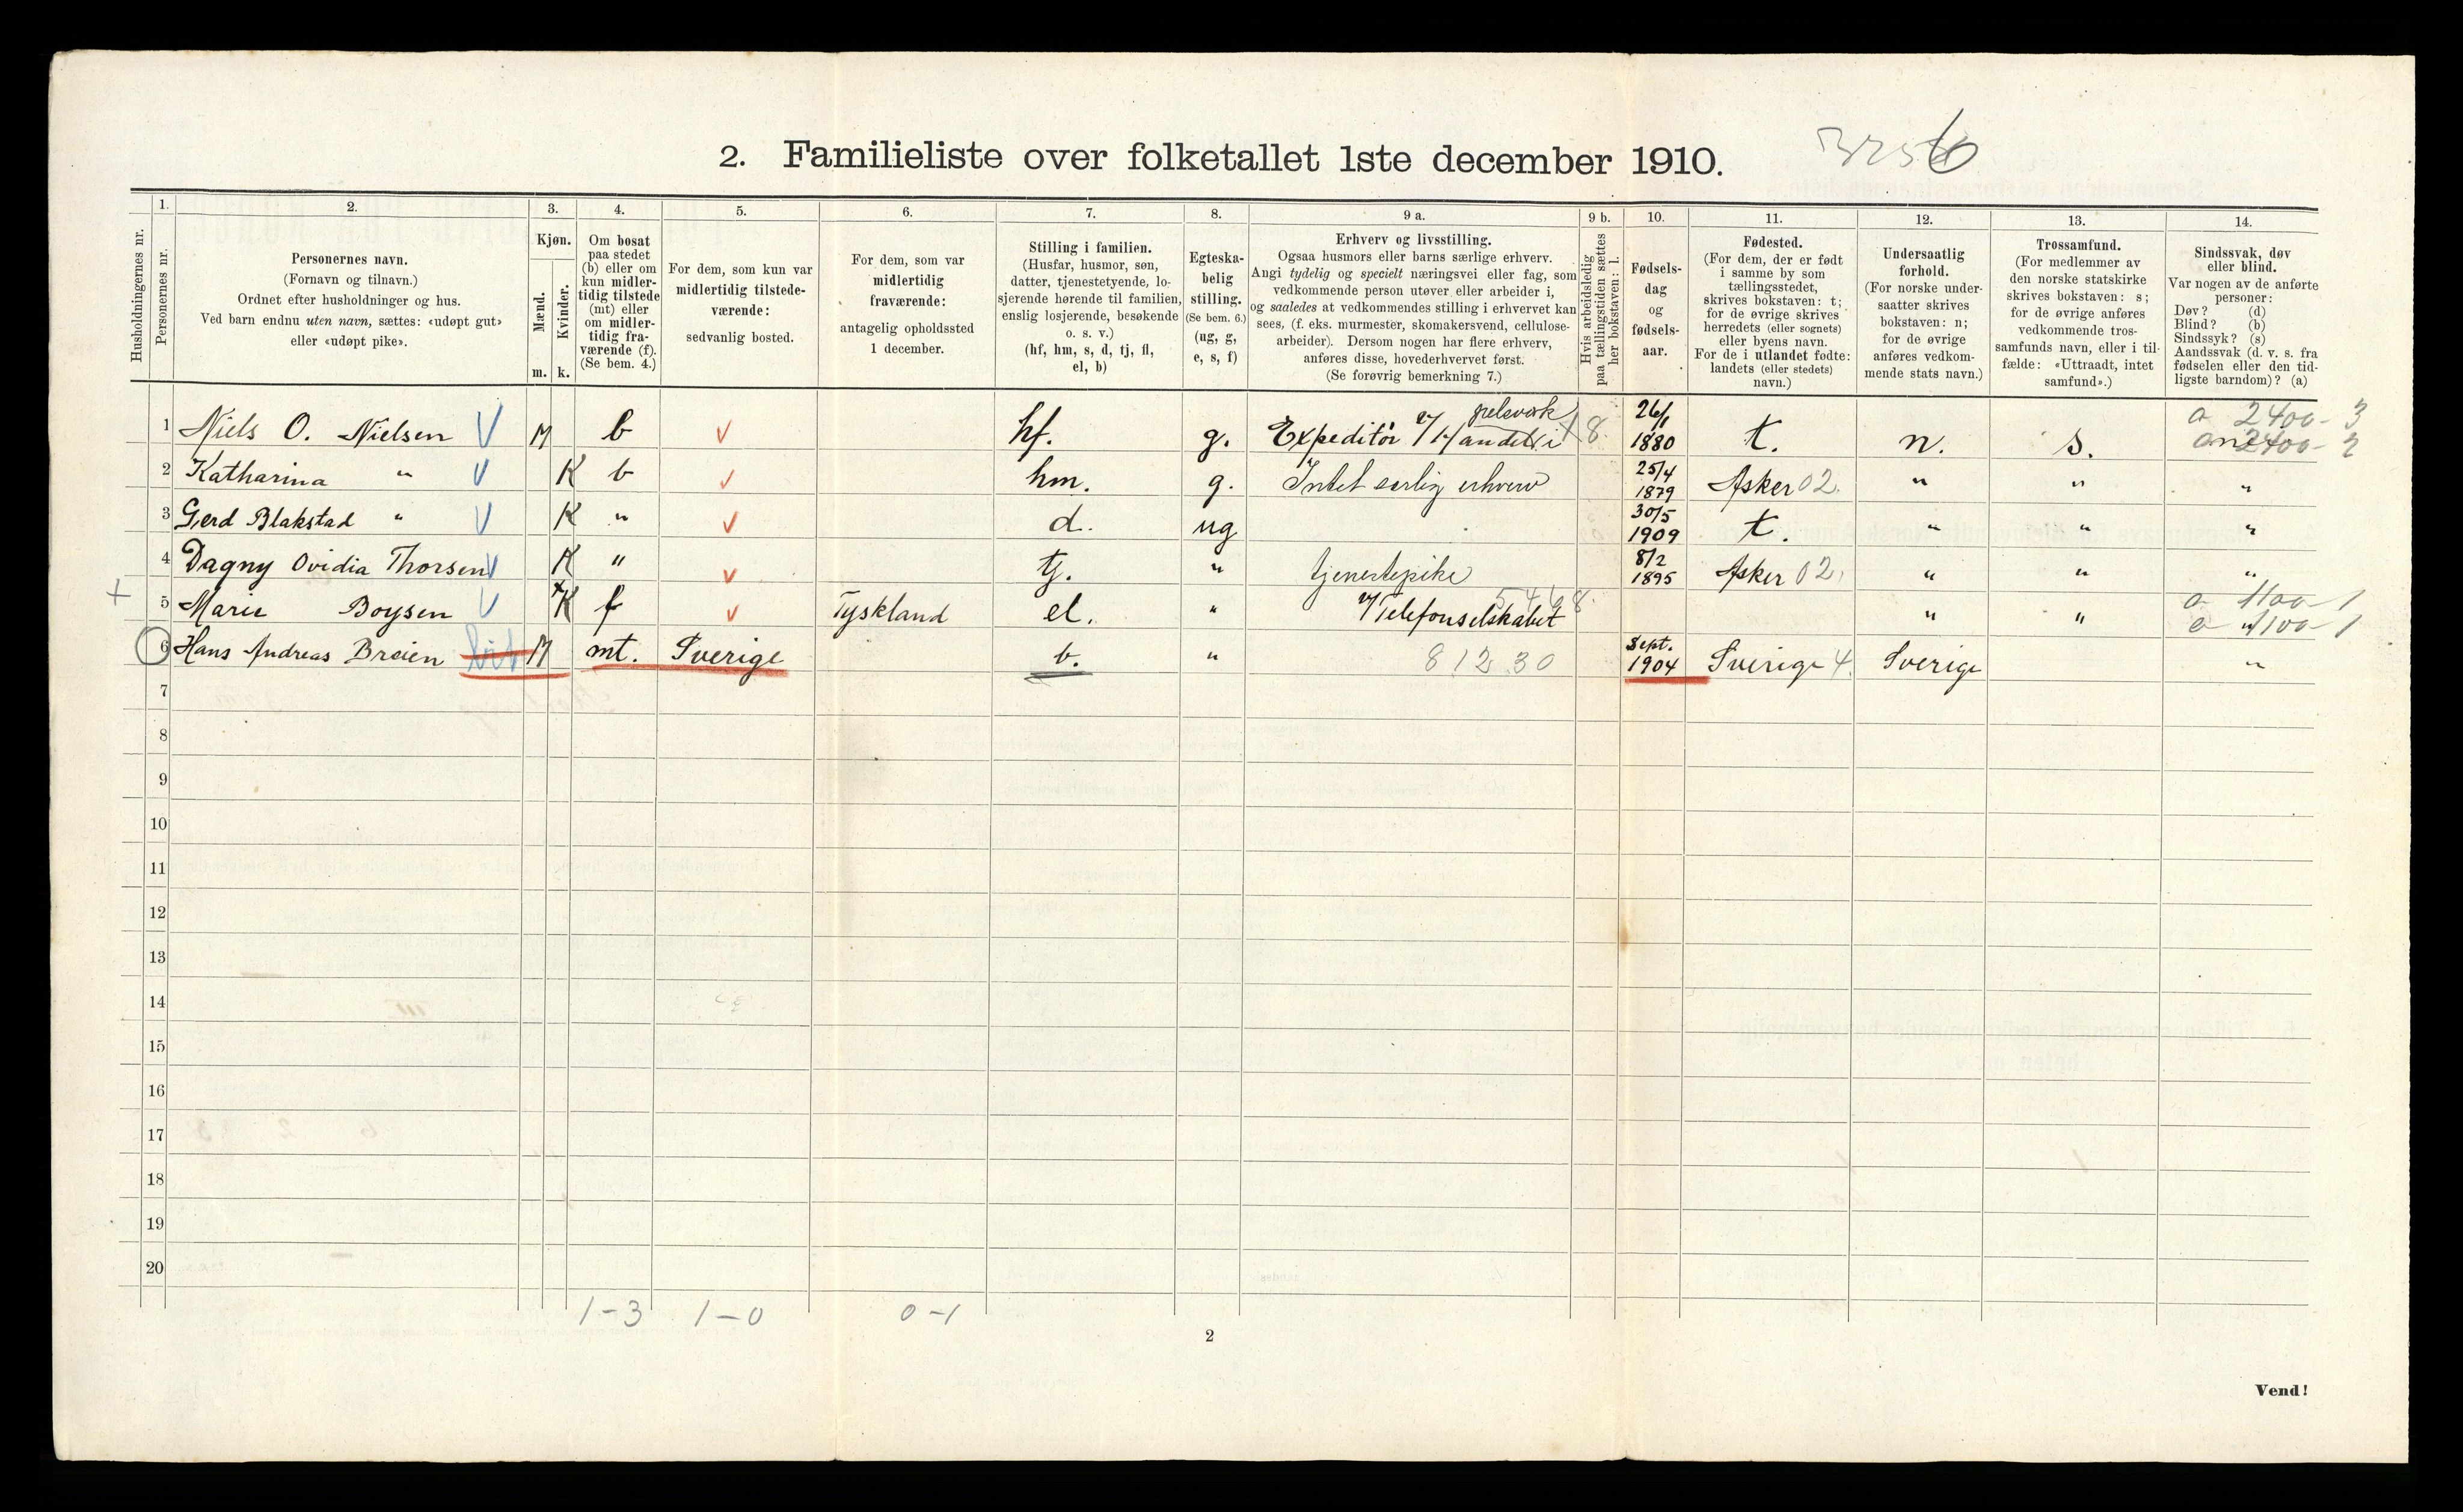 2. Familieliste over folketallet 1ste december 1910.
1.
2.
3.
4.
5.
6.
7.
8.
9 a.
9 b.
10.
11.
12.
13.
14.
Husholdningernes nr.
Personernes nr.
Personernes navn.
(Fornavn og tilnavn.)
Ordnet efter husholdninger og hus.
Ved barn endnu uten navn, sættes: «udøpt gut»
eller «udøpt pike».
Kjøn.
Mænd.
Kvinder.
m. k.
Om bosat
paa stedet
(b) eller om
kun midler-
tidig tilstede
(mt) eller
om midler-
tidig fra-
værende (f).
(Se bem. 4.)
For dem, som kun var
midlertidig tilstede-
værende:
sedvanlig bosted.
For dem, som var
midlertidig
fraværende:
antagelig opholdssted
1 december.
Stilling i familien.
(Husfar, husmor, søn,
datter, tjenestetyende, lo-
sjerende hørende til familien,
enslig losjerende, besøkende
o. s. v.)
(hf, hm, s, d, tj, fl,
el, b)
Egteska-
belig
stilling.
(Se bem. 6.)
(ug, g,
e, s, f)
Erhverv og livsstilling.
Ogsaa husmors eller barns særlige erhverv.
Angi tydelig og specielt næringsvei eller fag, som
vedkommende person utøver eller arbeider i,
og saaledes at vedkommendes stilling i erhvervet kan
sees, (f. eks. murmester, skomakersvend, cellulose-
arbeider). Dersom nogen har flere erhverv,
anføres disse, hovederhvervet først.
(Se forøvrig bemerkning 7.)
Hvis arbeidsledig
paa tællingstiden sættes
her bokstaven: l.
Fødsels-
dag
og
fødsels-
aar.
Fødested.
(For dem, der er født
i samme by som
tællingsstedet,
skrives bokstaven: t;
for de øvrige skrives
herredets (eller sognets)
eller byens navn.
For de i utlandet fødte:
landets (eller stedets)
navn.)
Undersaatlig
forhold.
(For norske under-
saatter skrives
bokstaven: n;
for de øvrige
anføres vedkom-
mende stats navn.)
Trossamfund.
(For medlemmer av
den norske statskirke
skrives bokstaven: s;
for de øvrige anføres
vedkommende tros-
samfunds navn, eller i til-
fælde: «Uttraadt, intet
samfund».)
Sindssvak, døv
eller blind.
Var nogen av de anførte
personer:
Døv? (d)
Blind? (b)
Sindssyk? (s)
Aandssvak (d. v. s. fra
fødselen eller den tid-
ligste barndom)? (a)
1 Niels O. Nielsen V M b V hf. g. Expeditör v/ Handel i pelsverk 8. 26/1 1880 t. n. s. a 2400 - 3
2 Katharina " V K b V hm. g. Intet særlig erhverv 25/4 1879 Asker 02. " " "
3 Gerd Blakstad " V K " V d. ug 30/5 1909 t. " " "
4 Dagny Ovidia Thorsen V K " V tj. " tjenestepike 8/2 1895 Asker 02. " " "
+ 5 Marie Boysen V K f V Tyskland el. " v/ Telefonselskabet 5468. " " a 1100 - 1
6 Hans Andreas Breien M mt. Sverige b. " 812.30 Sept. 1904 Sverige 4. Sverige "
7
8
9
10
11
12
13
14
15
16
17
18
19
20
1-3 1-0 0-1
2
Vend!